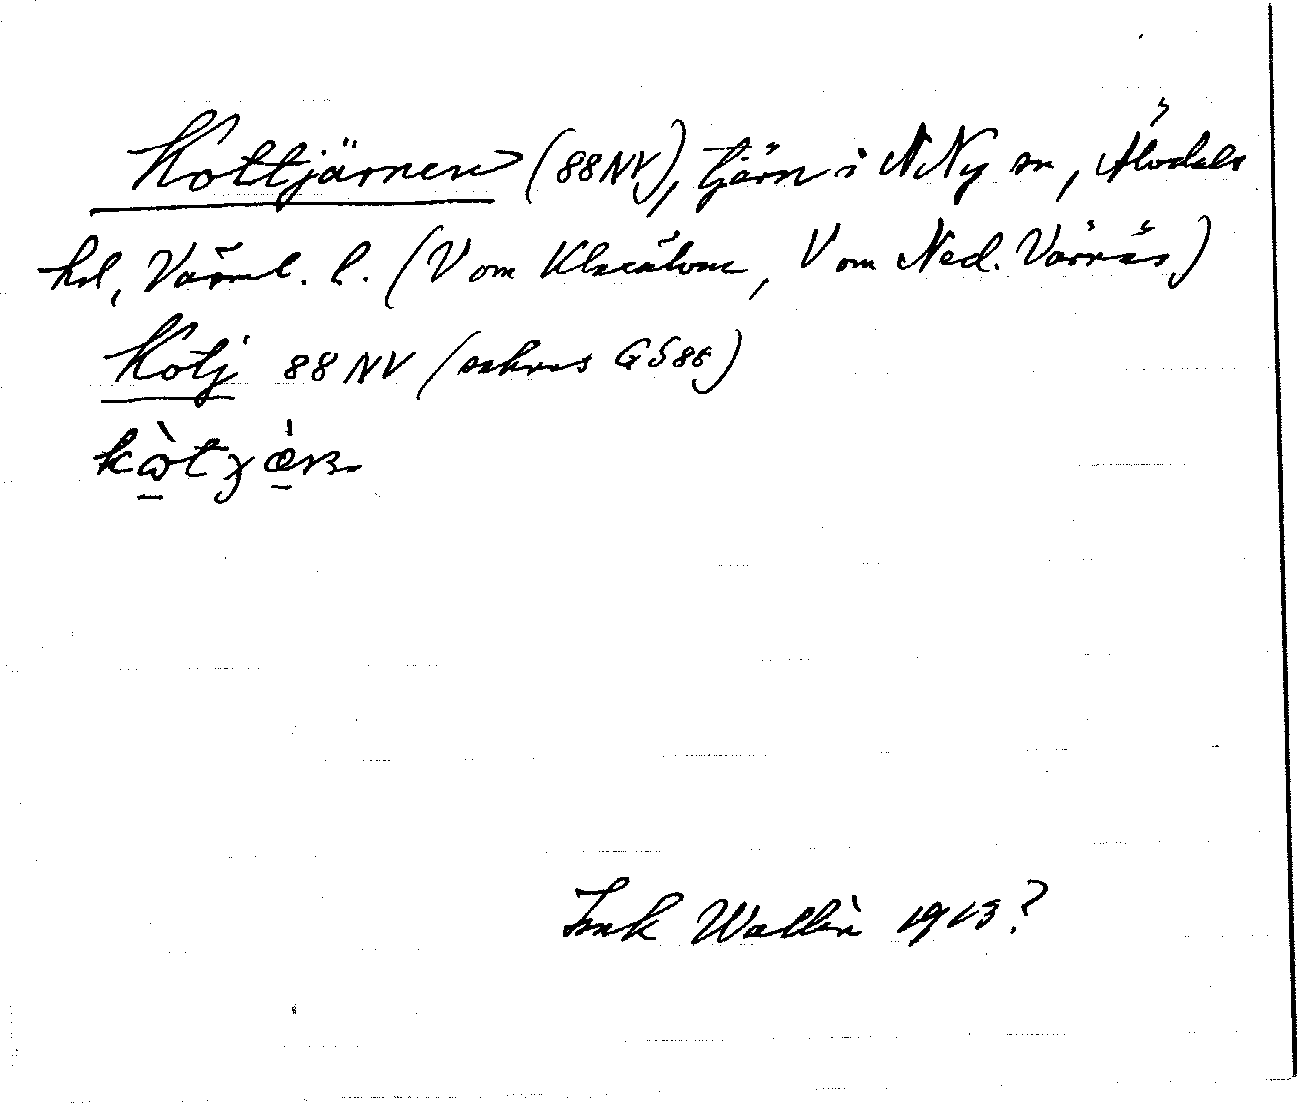 Kottjärnen (88NV), tjärn i N Ny sn, Älvdals
hd, Värml. l. (V om Klarälven, V om Ned. Värnäs)
Kotj 88 NV (saknas GS88)
Isak Wallin 1913?